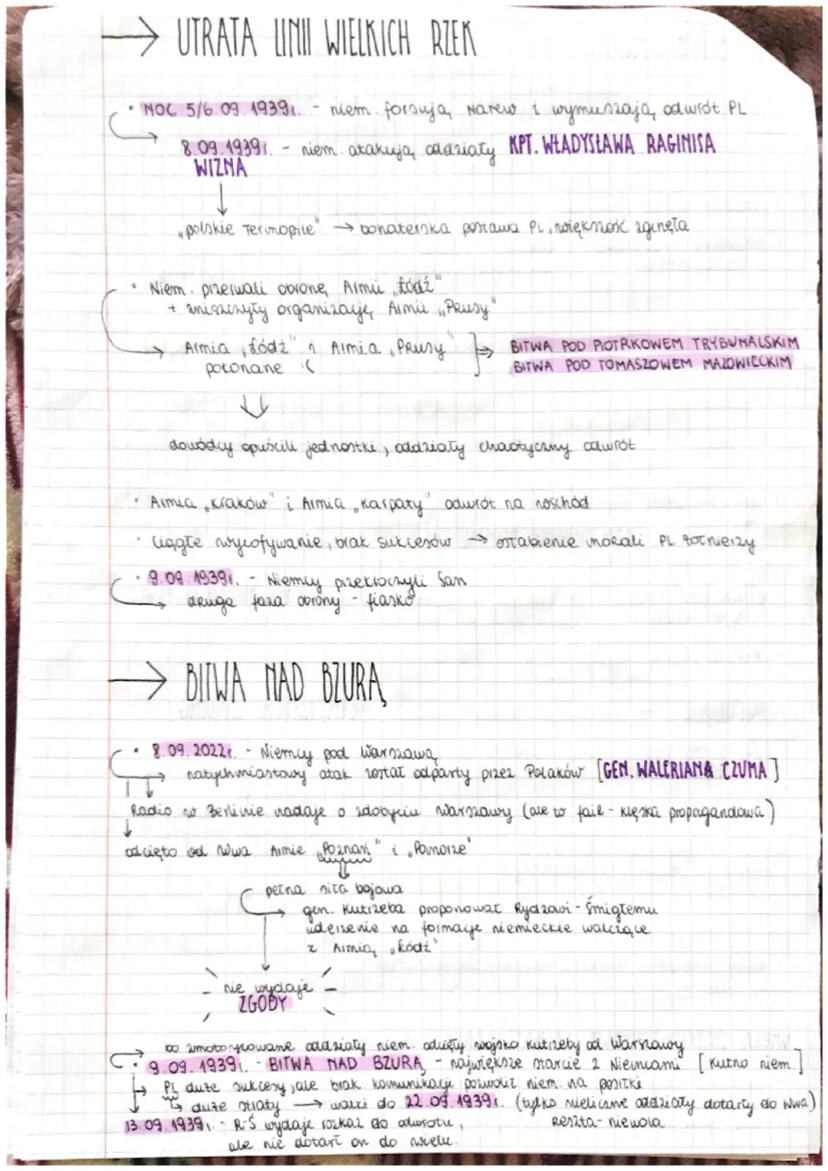 → UTRATA LINII WIELKICH RZEK
• NOC 5/6 09. 1939r. - niem. forsują Narew i wymuszają odwrót PL
8.09.1939r. - niem. atakują oddziały KPT. WŁADYSŁAWA RAGINISA
WIZNA
"polskie Termopile" → bohaterska postawa PL, większość zginęła
• Niem. przerwali obronę Armii „Łódź"
+ zniszczyły organizację Armii „Prusy"
→ Armia „Łódź" i Armia „Prusy" ⇒ BITWA POD PIOTRKOWEM TRYBUNALSKIM
pokonane :( BITWA POD TOMASZOWEM MAZOWIECKIM
dowódcy opuścili jednostki, oddziały chaotyczny odwrót
• Armia „Kraków" i Armia „Karpaty" odwrót na wschód
• Ciągłe wycofywanie, brak sukcesów → osłabienie morali PL żołnierzy
• 9.09.1939r. - Niemcy przekroczyli San
→ druga faza obrony - fiasko
→ BITWA NAD BZURĄ
• 8.09.2022r. - Niemcy pod Warszawą
→ natychmiastowy atak został odparty przez Polaków [GEN. WALERIANA CZUMA]
Radio w Berlinie nadaje o zdobyciu Warszawy (ale to fail - klęska propagandowa)
odcięto od Wwa Armie „Poznań" i „Pomorze"
pełna siła bojowa
→ gen. Kutrzeba proponował Rydzowi-Śmigłemu
uderzenie na formacje niemieckie walczące
z Armią „Łódź"
nie wydaje
ZGODY
→ bo zmotoryzowane oddziały niem. odcięły wojsko Kutrzeby od Warszawy
• 9.09.1939r. - BITWA NAD BZURĄ - największe starcie z Niemcami [Kutno niem.]
→ PL duże sukcesy, ale brak komunikacji pozwolił niem. na posiłki
→ duże straty → walki do 22.09.1939r. (tylko nieliczne oddziały dotarły do Wwa)
13.09.1939r. - R-Ś wydaje rozkaz do odwrotu, reszta - niewola
ale nie dotarł on do wielu.